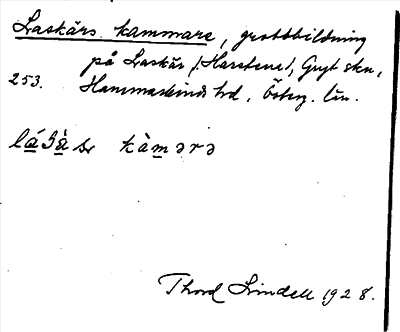 Laskärs kammare, grottbildning
på Laskär (Harstena), Gryt skn,
253. Hammarkinds hd, Österg. län.
kàmərə
Thord Lindell 1928.